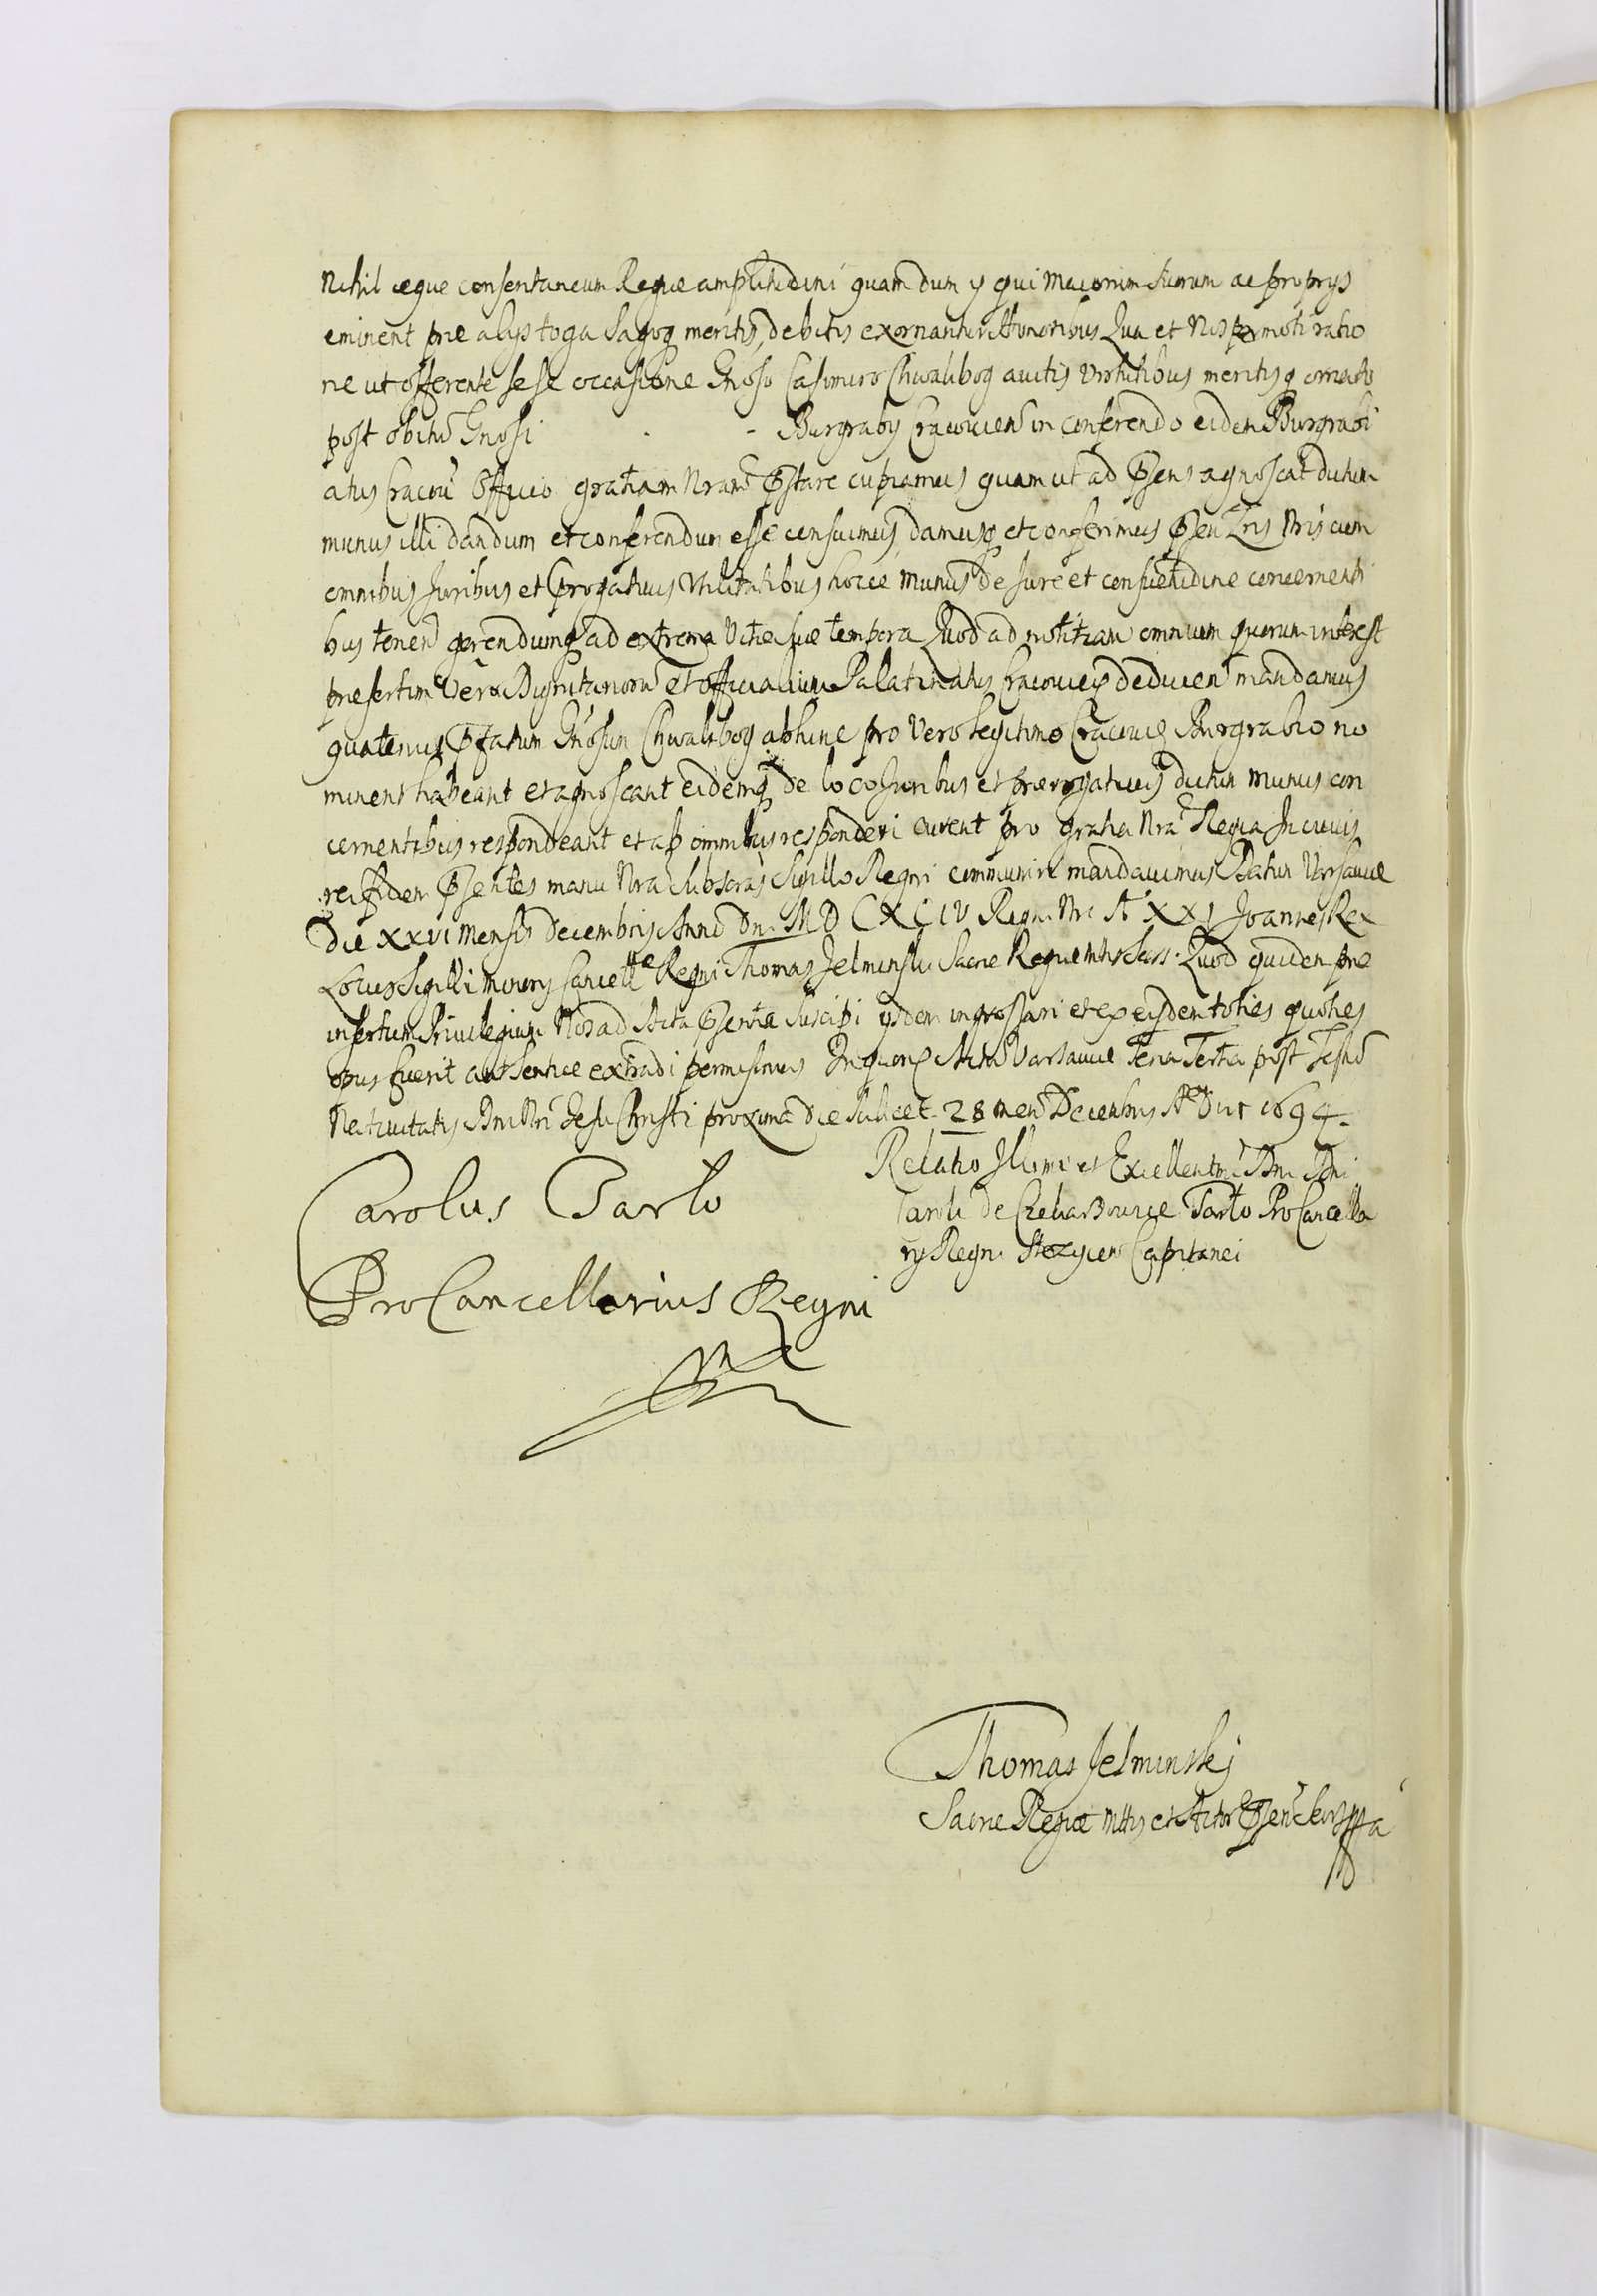 Nihil æque consentaneum Regiæ amplitudini quam dum ÿ qui Maiorum suorum ac proprÿs
eminent præ alÿs toga sagoq meritis, debitis exornantur Honoribus Qua et Nos permoti ratio
ne ut offerente sese occasione Gnoso Casimiro Chwalibog avitis virtutibus meritisq ornato
post obitũ Gnosi - - Burgrabÿ Cracovien in conferendo eidem Burgrabi
atus Cracoũ Officio gratiam Nram p̃stare cupiamus quam ut ad p̃sens agnoscat dictum
munus illi dandum et conferendum esse censuimus, damusq et conferimus p̃sen Lris Nris cum
omnibus Juribus et p̃rogativis Utilitatibus hocce munus de Jure et consuetudine concernenti
bus tenen gerendumq ad extrema Vitæ suæ tempora Quod ad notitiam omnium quorum interest
præsertim Verõ Dignitariorũ et Officialium Palatinatus Cracovien deducen mandamus
quatenus p̃fatum Gnosum Chwalibog abhinc pro Vero legitimo Cracovien Burgrabio no
minent habeant et agnoscant eidemq de loco Juribus et prærogativis dictum Munus con
cernentibus respondeant et ab omnibus responderi curent pro gratia Nra Regia In cuius
rei fidem p̃sentes manu Nra subscras Sigillo Regni communiri mandavimus Datum Varsaviæ
Die XXVI Mensis Decembris Anno Dni MDCXCIV Regni Nri Aº XXI Joannes Rex
Locus Sigilli Minoris Cancellæ Regni Thomas Jelminski Sacræ Regiæ Mttis Secr. Quod quidem præ
insertum Privilegium Nos ad Acta p̃sentia suscipi ÿsdem ingrossari et ex eisdem toties quoties
opus fuerit authenticæ extradi permisimus In quorũ Actũ Varsaviæ Feria Tertia post Festũ
Nativitatis Dni Nri Jesu Christi proxima die scilicet 28 men Decembris Aº Dni 1694.
Carolus Tarlo
ProCancellarius Regni
Relatio Illmi et Excellentmi Dni Dni
Caroli de Czekarzowice Tarlo ProCancella
rÿ Regni Stezycen Capitanei
Thomas Jelminskj
Sacræ Regiæ Mttis et Actor p̃sen